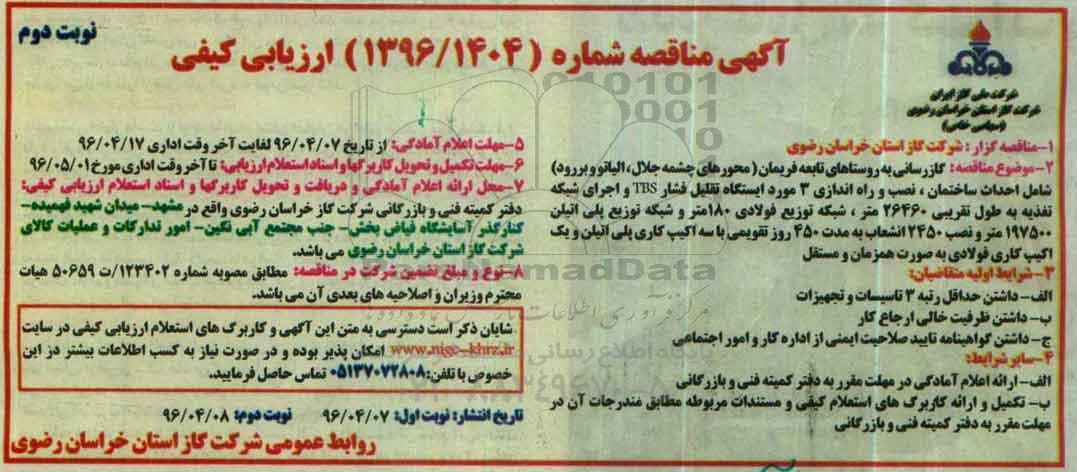 نوبت دوم
آگهی مناقصه شماره (۱۳۹۶/۱۴۰۴) ارزیابی کیفی
شرکت ملی گاز ایران
شرکت گاز استان خراسان رضوی
(سهامی خاص)
۱-مناقصه گزار: شرکت گاز استان خراسان رضوی
۲-موضوع مناقصه: گازرسانی به روستاهای تابعه فریمان (محورهای چشمه جلال، الیاتو و بررود)
شامل احداث ساختمان، نصب و راه اندازی ۳ مورد ایستگاه تقلیل فشار TBS و اجرای شبکه
تغذیه به طول تقریبی ۲۶۴۶۰ متر، شبکه توزیع فولادی ۱۸۰متر و شبکه توزیع پلی اتیلن
۱۹۷۵۰۰ متر و نصب ۲۴۵۰ انشعاب به مدت ۴۵۰ روز تقویمی با سه اکیپ کاری پلی اتیلن و یک
اکیپ کاری فولادی به صورت همزمان و مستقل
۳-شرایط اولیه متقاضیان:
الف- داشتن حداقل رتبه ۳ تاسیسات و تجهیزات
ب- داشتن ظرفیت خالی ارجاع کار
ج- داشتن گواهینامه تایید صلاحیت ایمنی از اداره کار و امور اجتماعی
۴-سایر شرایط:
الف- ارائه اعلام آمادگی در مهلت مقرر به دفتر کمیته فنی و بازرگانی
ب- تکمیل و ارائه کاربرگ های استعلام کیفی و مستندات مربوطه مطابق مندرجات آن در
مهلت مقرر به دفتر کمیته فنی و بازرگانی
۵-مهلت اعلام آمادگی: از تاریخ ۹۶/۰۴/۰۷ لغایت آخر وقت اداری ۹۶/۰۴/۱۷
۶-مهلت تکمیل و تحویل کاربرگها و اسناد استعلام ارزیابی: تا آخر وقت اداری مورخ ۹۶/۰۵/۰۱
۷-محل ارائه اعلام آمادگی و دریافت و تحویل کاربرگها و اسناد استعلام ارزیابی کیفی:
دفتر کمیته فنی و بازرگانی شرکت گاز خراسان رضوی واقع در مشهد- میدان شهید فهمیده-
کنارگذر آسایشگاه فیاض بخش- جنب مجتمع آبی نگین- امور تدارکات و عملیات کالای
شرکت گاز استان خراسان رضوی می باشد.
۸-نوع و مبلغ تضمین شرکت در مناقصه: مطابق مصوبه شماره ۱۲۳۴۰۲/ت ۵۰۶۵۹ هیات
محترم وزیران و اصلاحیه های بعدی آن می باشد.
شایان ذکر است دسترسی به متن این آگهی و کاربرگ های استعلام ارزیابی کیفی در سایت
www.nigc-khrz.ir امکان پذیر بوده و در صورت نیاز به کسب اطلاعات بیشتر در این
خصوص با تلفن: ۰۵۱۳۷۰۷۲۸۰۸ تماس حاصل فرمایید.
تاریخ انتشار: نوبت اول: ۹۶/۰۴/۰۷ نوبت دوم: ۹۶/۰۴/۰۸
روابط عمومی شرکت گاز استان خراسان رضوی